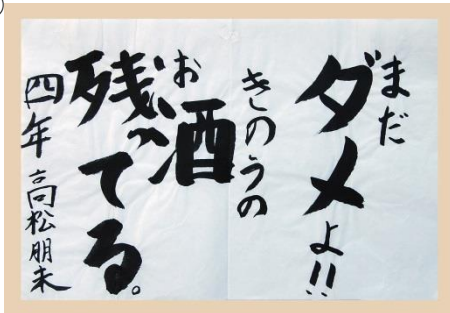 まだ
ダメよ!!
きのうの
お酒
残ってる。
四年 高松朋未